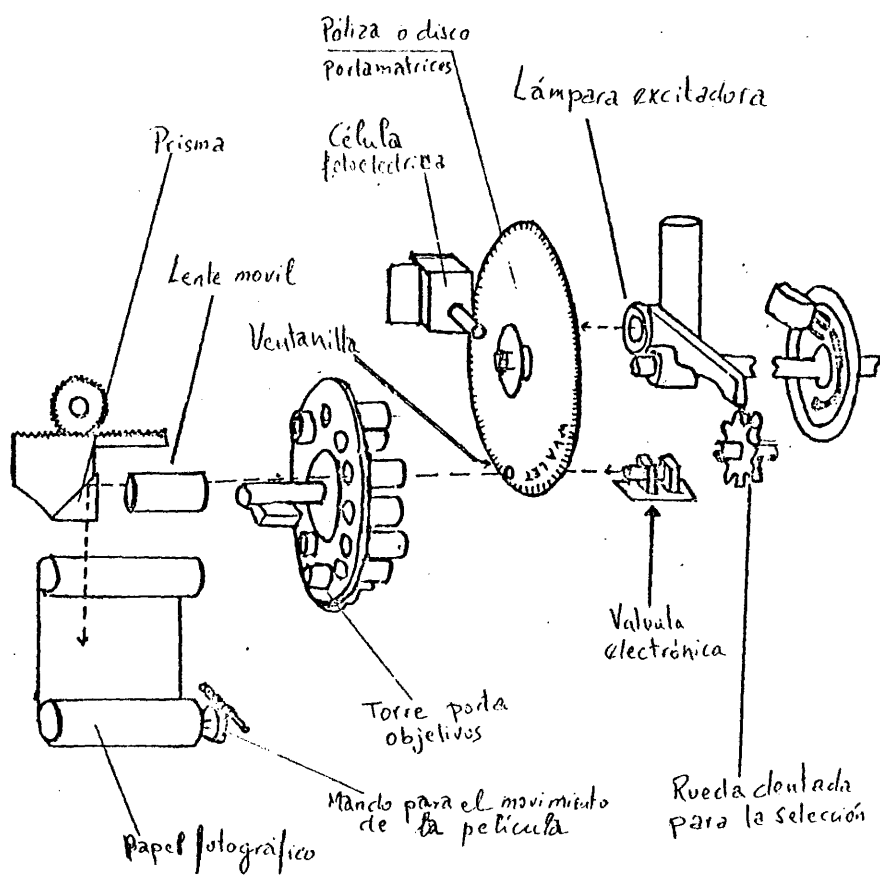 Póliza o disco
portamatrices
Lámpara excitadora
Célula
fotoeléctrica
Prisma
Lente movil
Ventanilla
Valvula
electrónica
Torre porta
objetivos
Mando para el movimiento
de la película
Papel fotográfico
Rueda dentada
para la selección